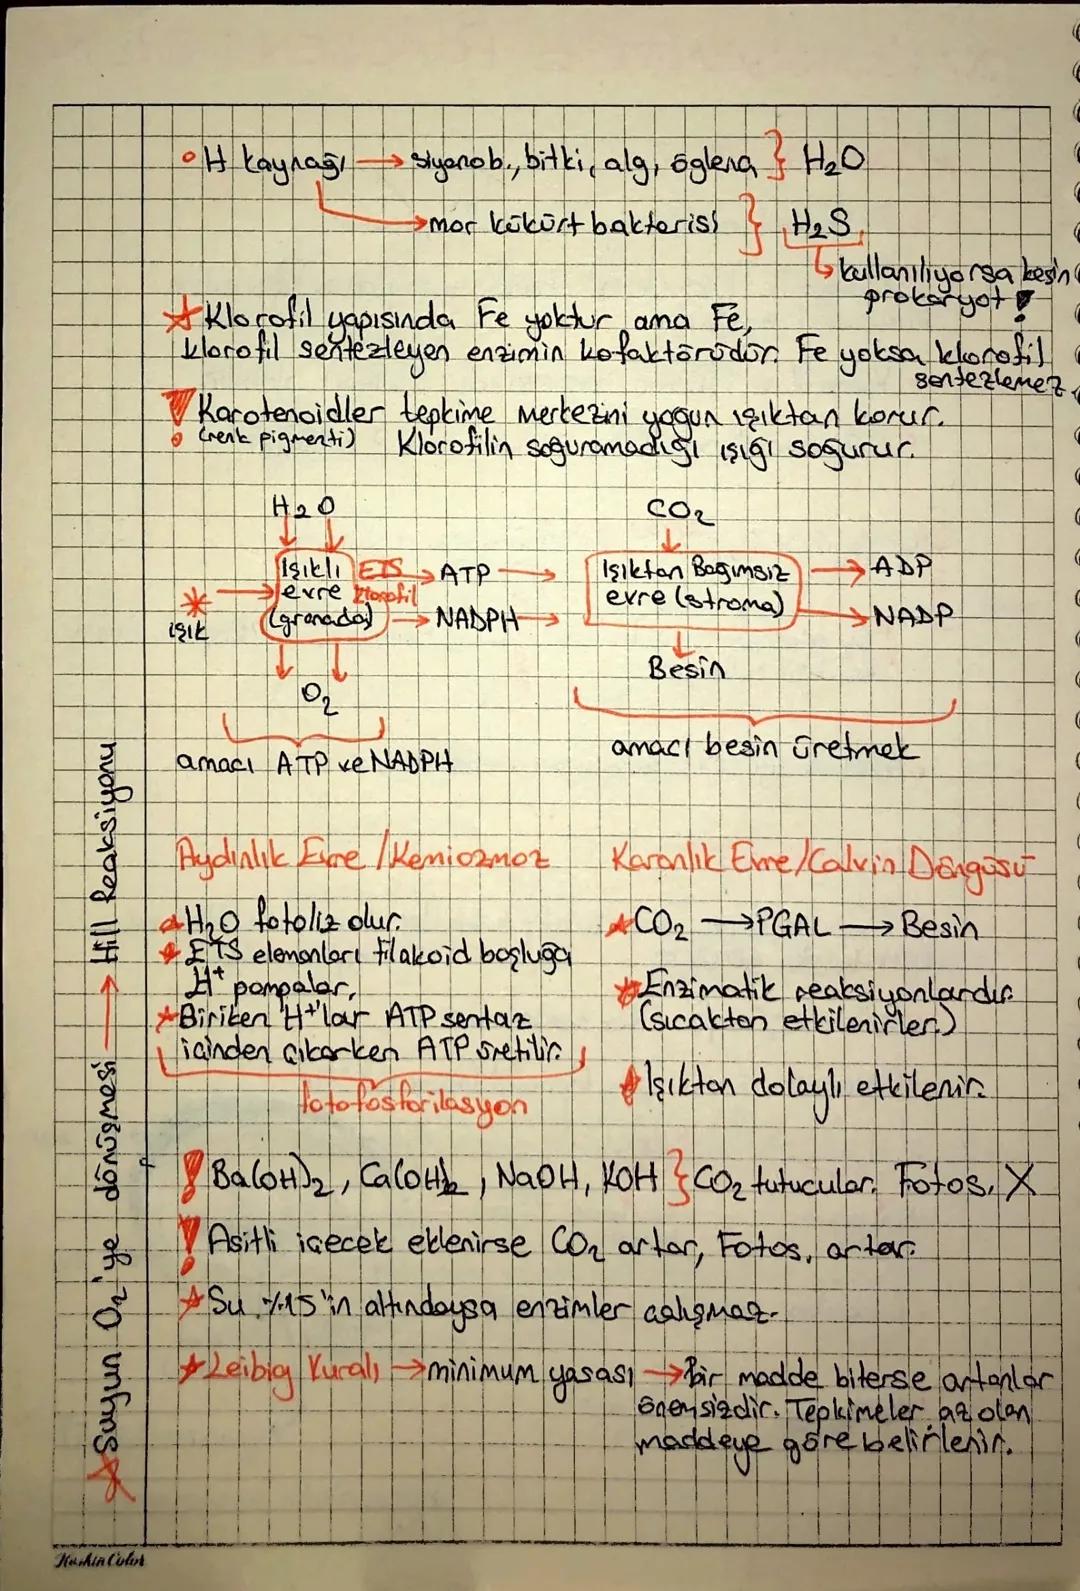 H kaynağı → siyanob., bitki, alg, öglena } H₂O
→ mor kükürt bakterisi } H₂S
kullanılıyorsa kesin
prokaryot !
Klorofil yapısında Fe yoktur ama Fe,
klorofil sentezleyen enzimin kofaktörüdür. Fe yoksa klorofil
sentezlemez.
! Karotenoidler tepkime merkezini yoğun ışıktan korur.
(renk pigmenti) Klorofilin soğuramadığı ışığı soğurur.
H₂O
CO₂
ışık → Işıklı evre (granada) ETS klorofil
→ ATP →
→ NADPH →
Işıktan Bağımsız
evre (stroma)
→ ADP
→ NADP
O₂
Besin
amacı ATP ve NADPH
amacı besin üretmek
Aydınlık Evre / Kemiozmoz
Karanlık Evre/Calvin Döngüsü
H₂O fotoliz olur.
ETS elemanları tilakoid boşluğa
H⁺ pompalar,
Biriken H⁺'lar ATP sentaz
içinden çıkarken ATP üretilir.
fotofosforilasyon
CO₂ → PGAL → Besin
Enzimatik reaksiyonlardır
(sıcaktan etkilenirler.)
Işıktan dolaylı etkilenir.
! Ba(OH)₂, Ca(OH)₂, NaOH, KOH } CO₂ tutucular. Fotos. X
! Asitli içecek eklenirse CO₂ artar, Fotos. artar.
Su %15'in altındaysa enzimler çalışmaz.
Leibig Kuralı → minimum yasası → Bir madde biterse artanlar
önemsizdir. Tepkimeler az olan
maddeye göre belirlenir.
Suyun O₂'ye dönüşmesi → Hill Reaksiyonu